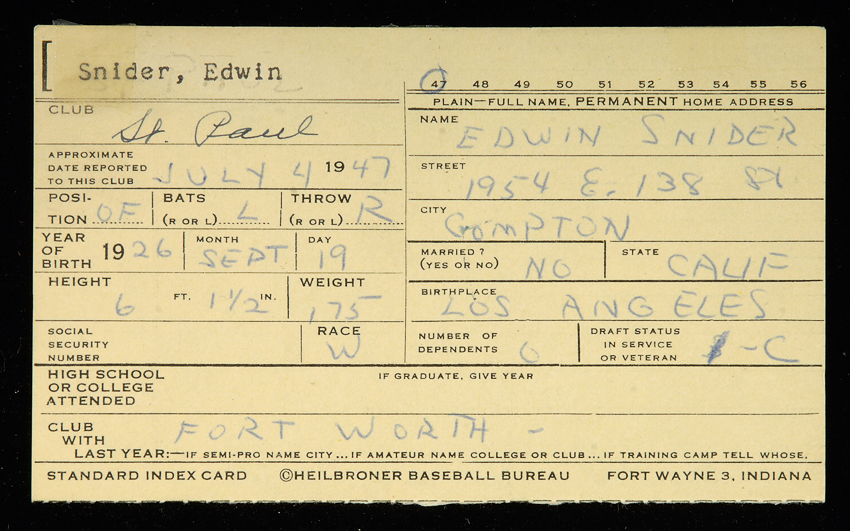 Snider, Edwin
47 48 49 50 51 52 53 54 55 56
PLAIN—FULL NAME, PERMANENT HOME ADDRESS
CLUB St. Paul
NAME EDWIN SNIDER
APPROXIMATE
DATE REPORTED
TO THIS CLUB JULY 4 1947
STREET 1954 E. 138 St
POSI-
TION OF
BATS
(R OR L) L
THROW
(R OR L) R
CITY COMPTON
YEAR
OF
BIRTH 1926
MONTH SEPT
DAY 19
MARRIED?
(YES OR NO) NO
STATE CALIF
HEIGHT 6 FT. 1 1/2 IN.
WEIGHT 175
BIRTHPLACE LOS ANGELES
SOCIAL
SECURITY
NUMBER
RACE W
NUMBER OF
DEPENDENTS 0
DRAFT STATUS
IN SERVICE
OR VETERAN -C
HIGH SCHOOL
OR COLLEGE
ATTENDED
IF GRADUATE, GIVE YEAR
CLUB
WITH
LAST YEAR:—IF SEMI-PRO NAME CITY...IF AMATEUR NAME COLLEGE OR CLUB...IF TRAINING CAMP TELL WHOSE.
FORT WORTH -
STANDARD INDEX CARD ©HEILBRONER BASEBALL BUREAU FORT WAYNE 3, INDIANA